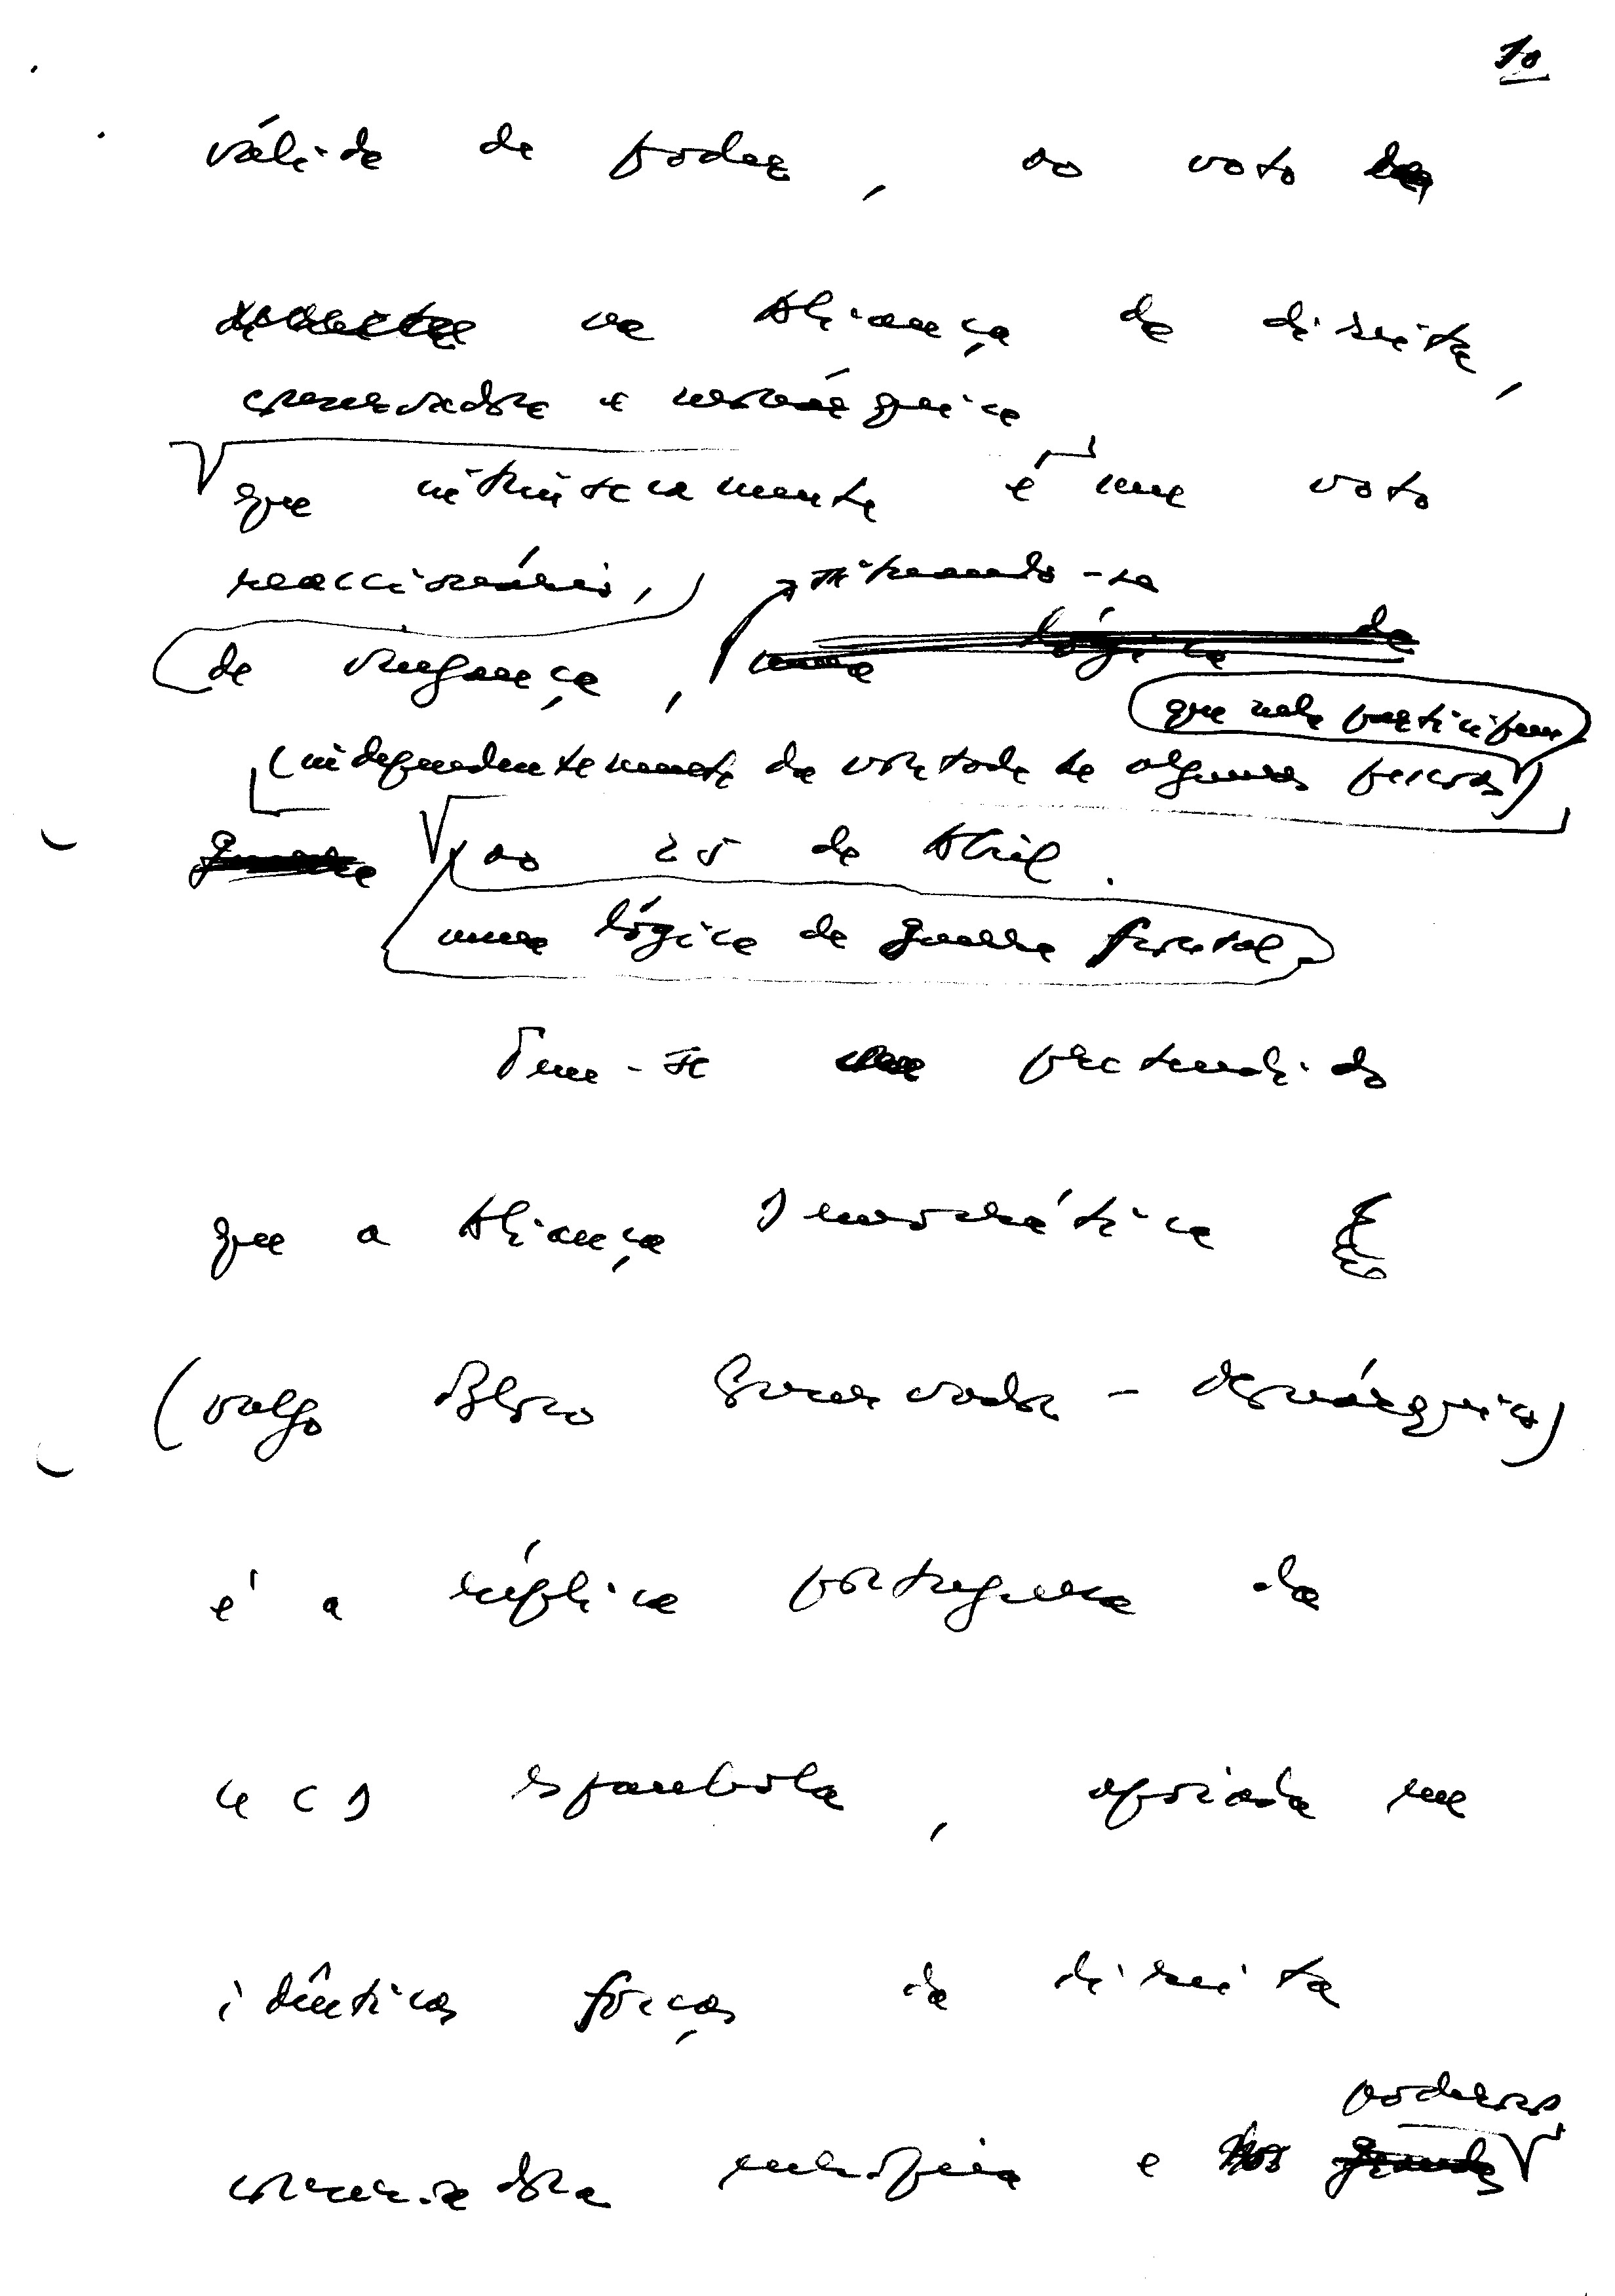 10
válida de poder, ao voto
na Aliança da direita,
conservadora e monárquica
que intrinsecamente é um voto
reaccionário,
de vingança, situando-se
uma lógica de
que nela participam
(independentemente da vontade de algumas pessoas)
ao 25 de Abril.
numa lógica de guerra frontal
Tem-se pretendido
que a Aliança Democrática
(vulgo Bloco Conservador-Monárquico)
é a réplica portuguesa da
UCD espanhola, apoiada em
idênticas forças da direita
poderosos
conservadora europeia e nos